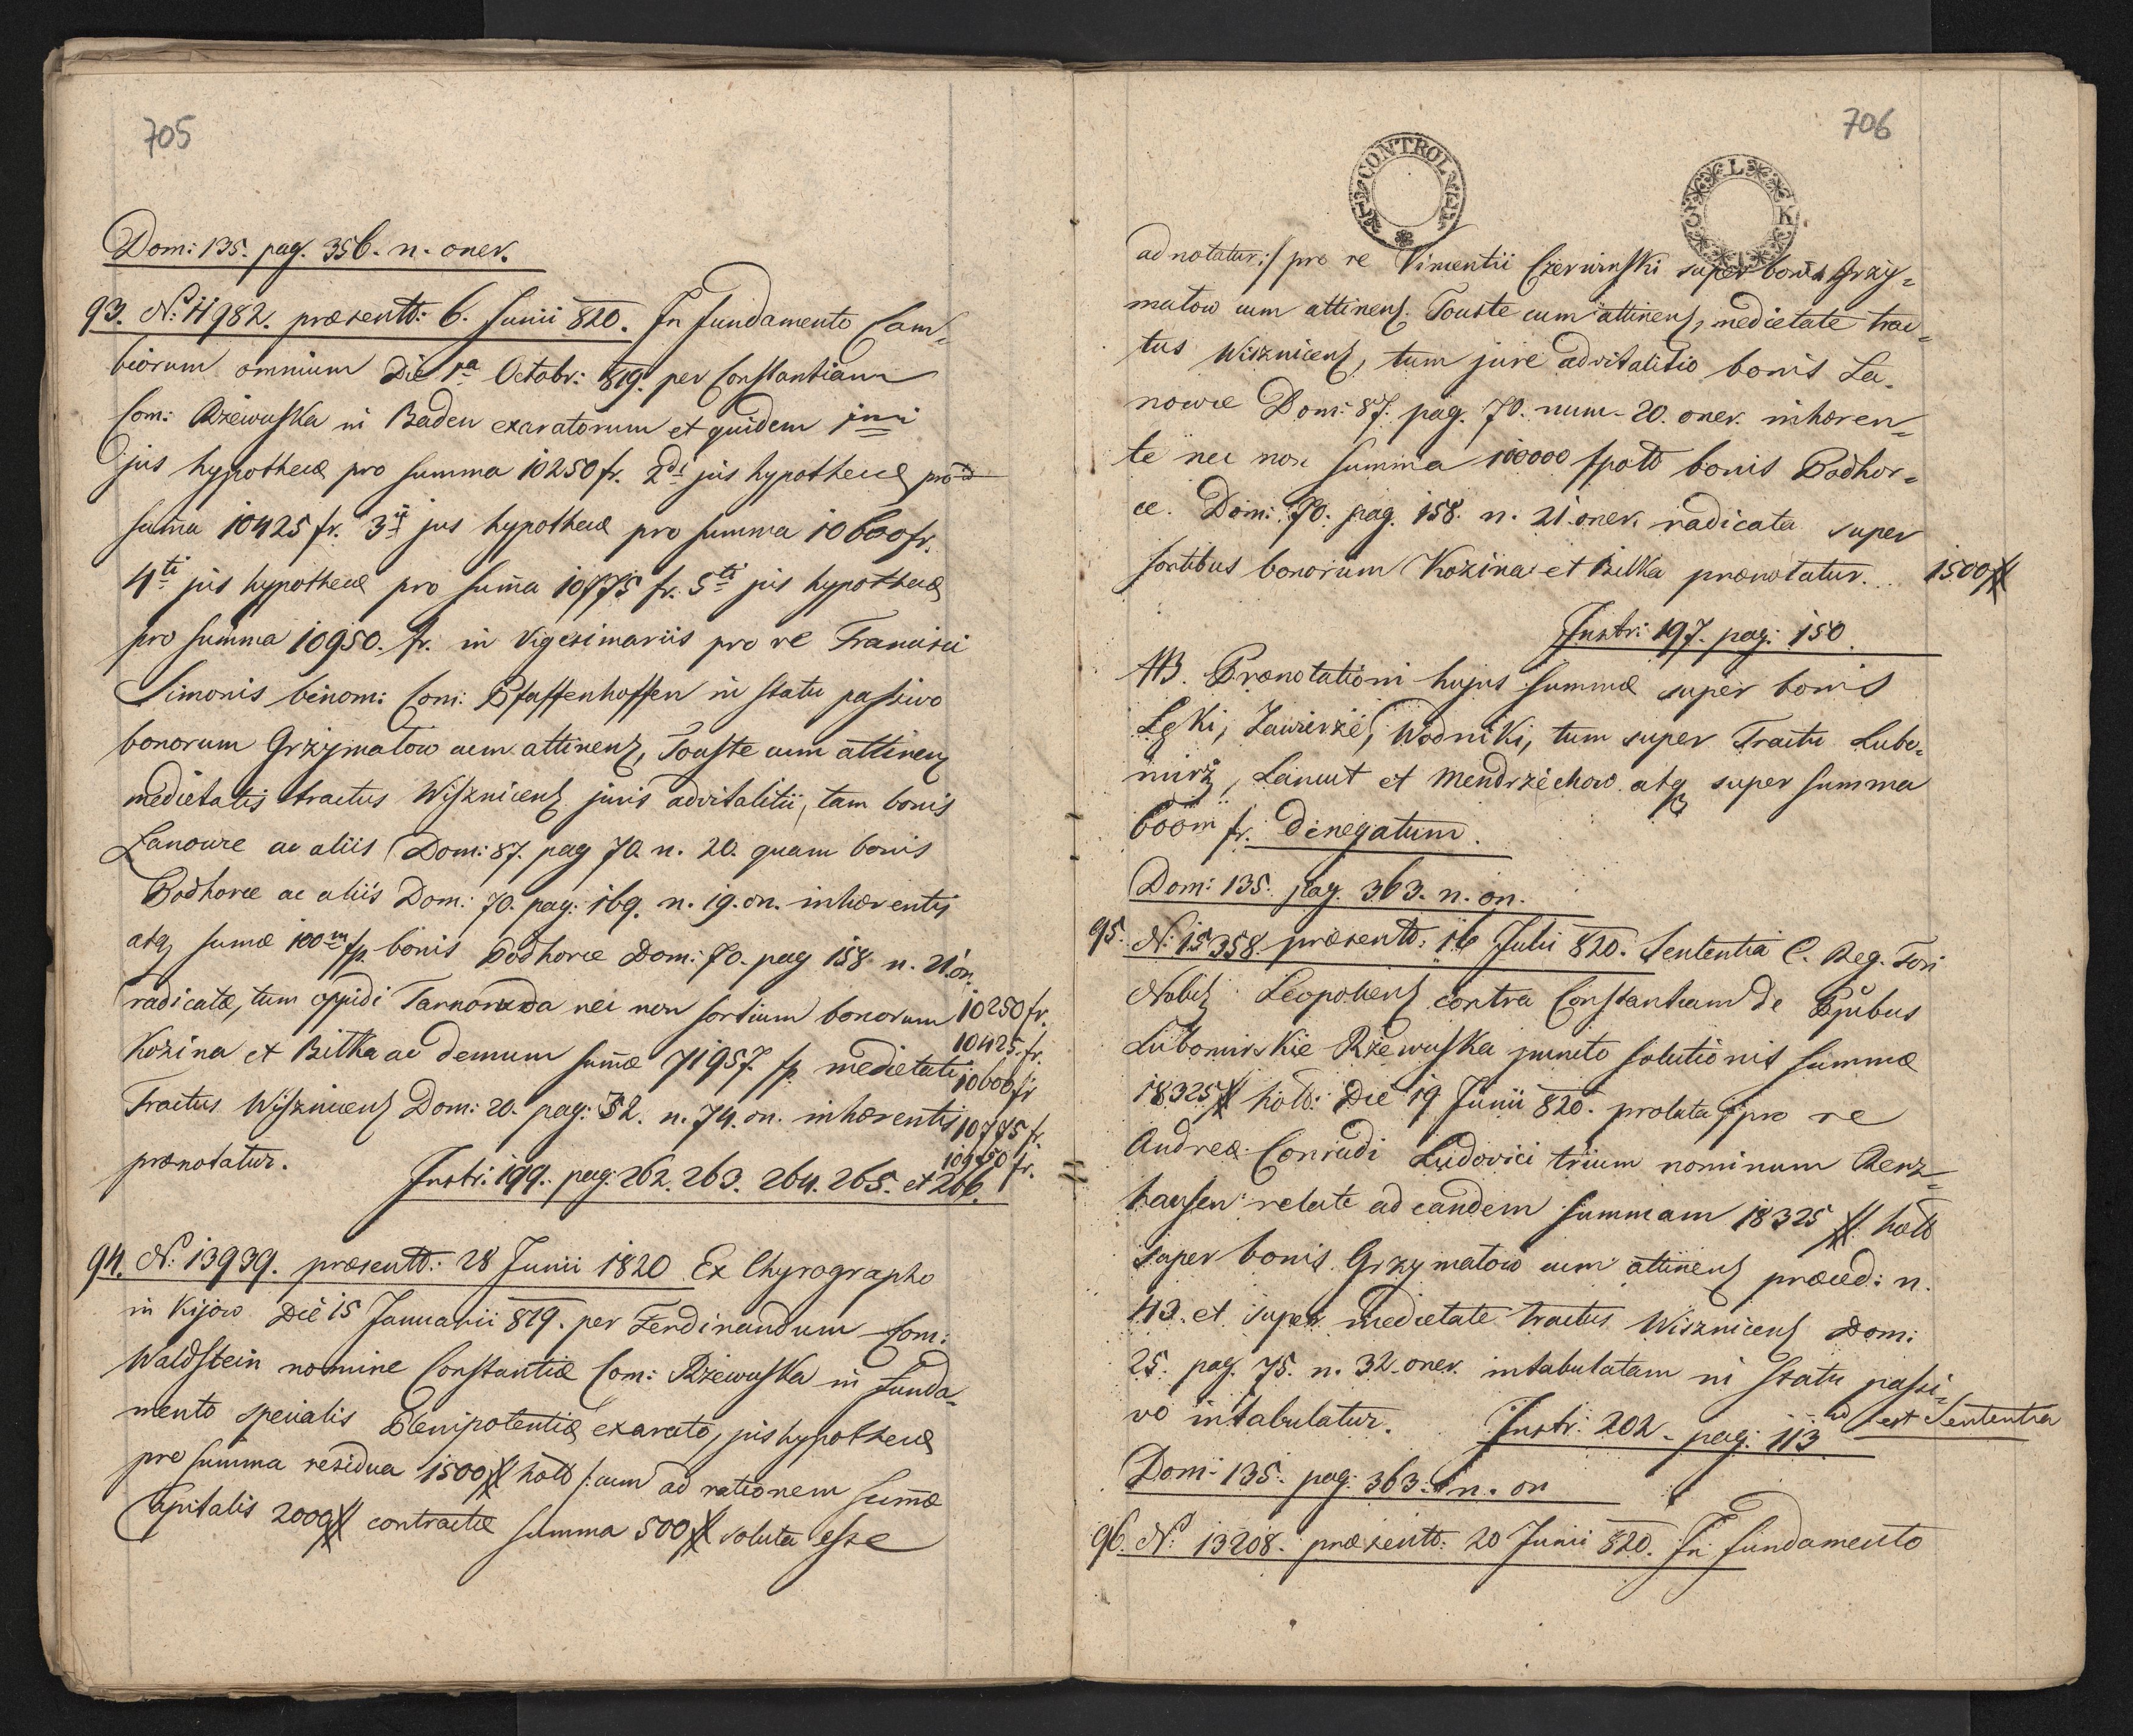 705
Dom: 135. pag. 356. n. oner.
93. N: 11982. præsentt: 6. Junii 820. In fundamento Cam=
biorum omnium Die 1ma Octobr: 819. per Constantiam
Com: Rzewuska in Baden exaratorum et quidem imi
jus hypothecæ pro summa 10250 fr. 2di jus hypothecæ pro
suma 10425 fr. 3ii jus hypothecæ pro summa 10600 fr.
4ti jus hypothecæ pro suma 10775 fr. 5ti jus hypothecæ
pro summa 10950. fr. in Vigesimariis pro re Francisci
Simonis binom: Com: Pfaffenhoffen in statu passivo
bonorum Grzymałow cum attinen, Touste cum attinen
medietatis tractus Wisznicens juris advitalitii, tam bonis
Lanowce ac aliis Dom: 87. pag 70. n. 20. quam bonis
Podhorce ac aliis Dom: 70. pag: 169. n. 19. on. inhærentis
atq sumæ 100m fp. bonis Podhorce Dom: 70. pag 158 n. 21 on.
radicatæ, tum oppidi Tarnoruda nec non sortium bonorum 10250 fr.
10425 fr.
Kozina et Bilka ac demum sumæ 71957. fp. medietati 10600 fr
Tractus Wisznicens Dom: 20. pag: 52. n. 74. on. inhærentis 10775 fr.
10950 fr.
prænotatur. Instr: 199. pag: 262. 263. 264. 265. et 266.
94. N: 13939. præsentt: 28 Junii 1820 Ex Chyrographo
in Kijow Die 15 Januarii 819. per Ferdinandum Com:
Waldstein nomine Constantiæ Com: Rzewuska in funda=
mento specialis Plenipotentiæ exarato, jus hypothecæ
pro summa residua 1500 # holl /: cum ad rationem sumæ
Capitalis 2000 # contractæ summa 500 # soluta esse
706
CONTROL
adnotatur :/ pro re Vincentii Czerwinski super bonis Grzy=
małow cum attinens. Touste cum attinens, medietate trac=
tus Wisznicens, tum jure advitalitio bonis La=
nowce Dom: 87. pag. 70. num. 20. oner. inhæren=
te nec non summa 100000 fpoll bonis Podhor=
ce. Dom: 70. pag. 158. n. 21. oner. radicata super
sortibus bonorum Kozina et Bilka prænotatur. 1500 #
Instr: 197. pag: 150.
NB. Prænotationi hujus summæ super bonis
Łęki, Zawierzie, Wodniki, tum super Tractu Lubo=
mirz, Lancut et Mendrzechow atq super summa
600m fr. denegatum.
Dom: 135. pag. 363. n. on.
95. N: 15358. præsentt: 16 Julii 820. Sententia C. Reg. Fori
Nobil Leopoliens contra Constantiam de Ppibus
Lubomirskie Rzewuska puncto solutionis summæ
18325 # holl: Die 19 Junii 820. prolata, pro re
Andreæ Conradi Ludovici trium nominum Renz=
hausen relate ad eandem summam 18325 # holl
super bonis Grzymałow cum attinens præced: n.
43. et super medietate tractus Wisznicens Dom:
25. pag. 75. n. 32. oner. intabulatam in statu passi=
vo intabulatur. Instr: 202. pag: 113 est Sententia
Dom: 135. pag: 363. n. on
96. N: 13208. præsentt: 20 Junii 820. In fundamento